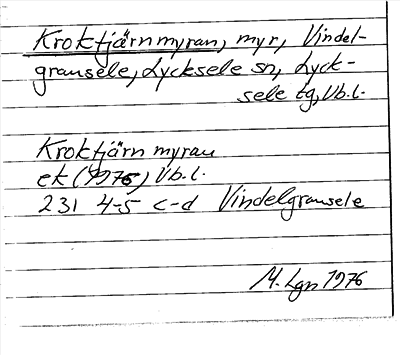 Kroktjärnmyran, myr, Vindel-
gransele, Lycksele sn, Lyck-
sele tg, Vb.l.
Kroktjärnmyran
ek (1976) Vb.l.
231 4-5 c-d Vindelgransele
M. Lgn 1976